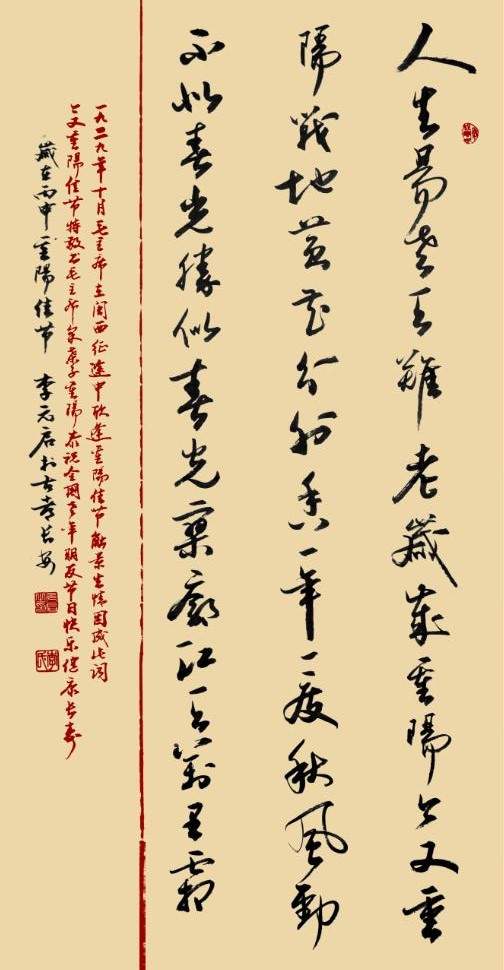 人生易老天難老歲歲重陽今又重
陽戰地黃花分外香一年一度秋風勁
不似春光勝似春光寥廓江天萬里霜
一九二九年十月毛主席在闽西征途中欣逢重陽佳节触景生情因成此词
今又重陽佳节特敬书毛主席采桑子重陽恭祝全國老年朋友节日快乐健康长寿
歲在丙申重陽佳节 李元启於古都长安